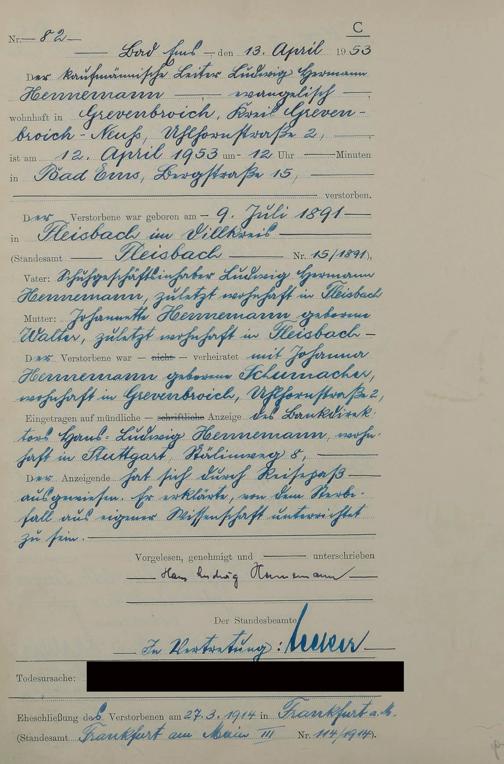 C
Nr. 82
Bad Ems, den 13. April 1953
Der kaufmännische Leiter Ludwig Hermann
Hennemann evangelisch,
wohnhaft in Grevenbroich, Kreis Greven-
broich-Neuß, Uhlhornstraße 2,
ist am 12. April 1953 um 12 Uhr Minuten
in Bad Ems, Bergstraße 15,
verstorben.
Der Verstorbene war geboren am 9. Juli 1891
in Fleisbach im Dillkreis
(Standesamt Fleisbach Nr. 15/1891),
Vater: Schuhgeschäftsinhaber Ludwig Hermann
Hennemann, zuletzt wohnhaft in Fleisbach
Mutter: Johannette Hennemann geborene
Walter, zuletzt wohnhaft in Fleisbach
Der Verstorbene war nicht verheiratet mit Johanna
Hennemann geborene Schumacher,
wohnhaft in Grevenbroich, Uhlhornstraße 2,
Eingetragen auf mündliche schriftliche Anzeige des Bankdirek-
tors Hans-Ludwig Hennemann, wohn-
haft in Stuttgart, 8,
Der Anzeigende hat sich durch Reisepaß
ausgewiesen. Er erklärte, von dem Sterbe-
fall aus eigener Wissenschaft unterrichtet
zu sein.
Vorgelesen, genehmigt und unterschrieben
Hans Ludwig Hennemann
Der Standesbeamte
In Vertretung:
Todesursache:
Eheschließung des Verstorbenen am 27.3.1914 in Frankfurt a.M.
(Standesamt Frankfurt am Main III Nr. 114/1914).